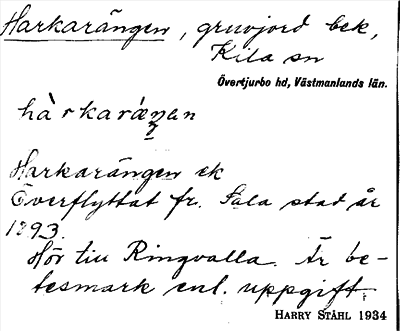 Harkarängen, gruvjord bek,
Kila sn
Övertjurbo hd, Västmanlands län.
hàrkaräŋən
Harkarängen ek
Överflyttat fr. Sala stad år
1893.
Hör till Ringvalla. Är be-
tesmark enl. uppgift.
HARRY STÅHL 1934